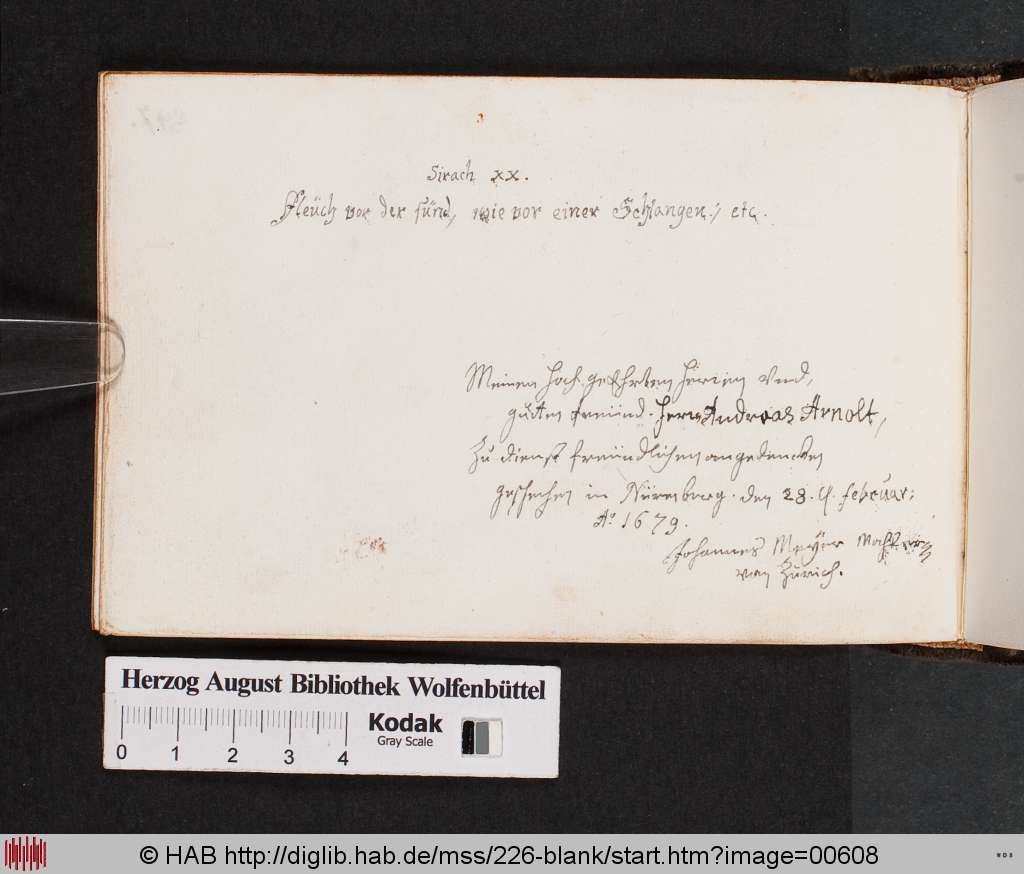 Sirach xx.
Fleüch vor der sünd, wie vor einer Schlangen; etc.
Meinen hoch geEhrten herren Vnd,
guten freünd. Hern Andreas Arnolt,
Zu dienst freündlichen angedencken
geschechen in Nürmberg. den 28. februar:
Aº 1679.
Johannes Meyer
von Zürich.
Herzog August Bibliothek Wolfenbüttel
Kodak
Gray Scale
0 1 2 3 4
© HAB http://diglib.hab.de/mss/226-blank/start.htm?image=00608